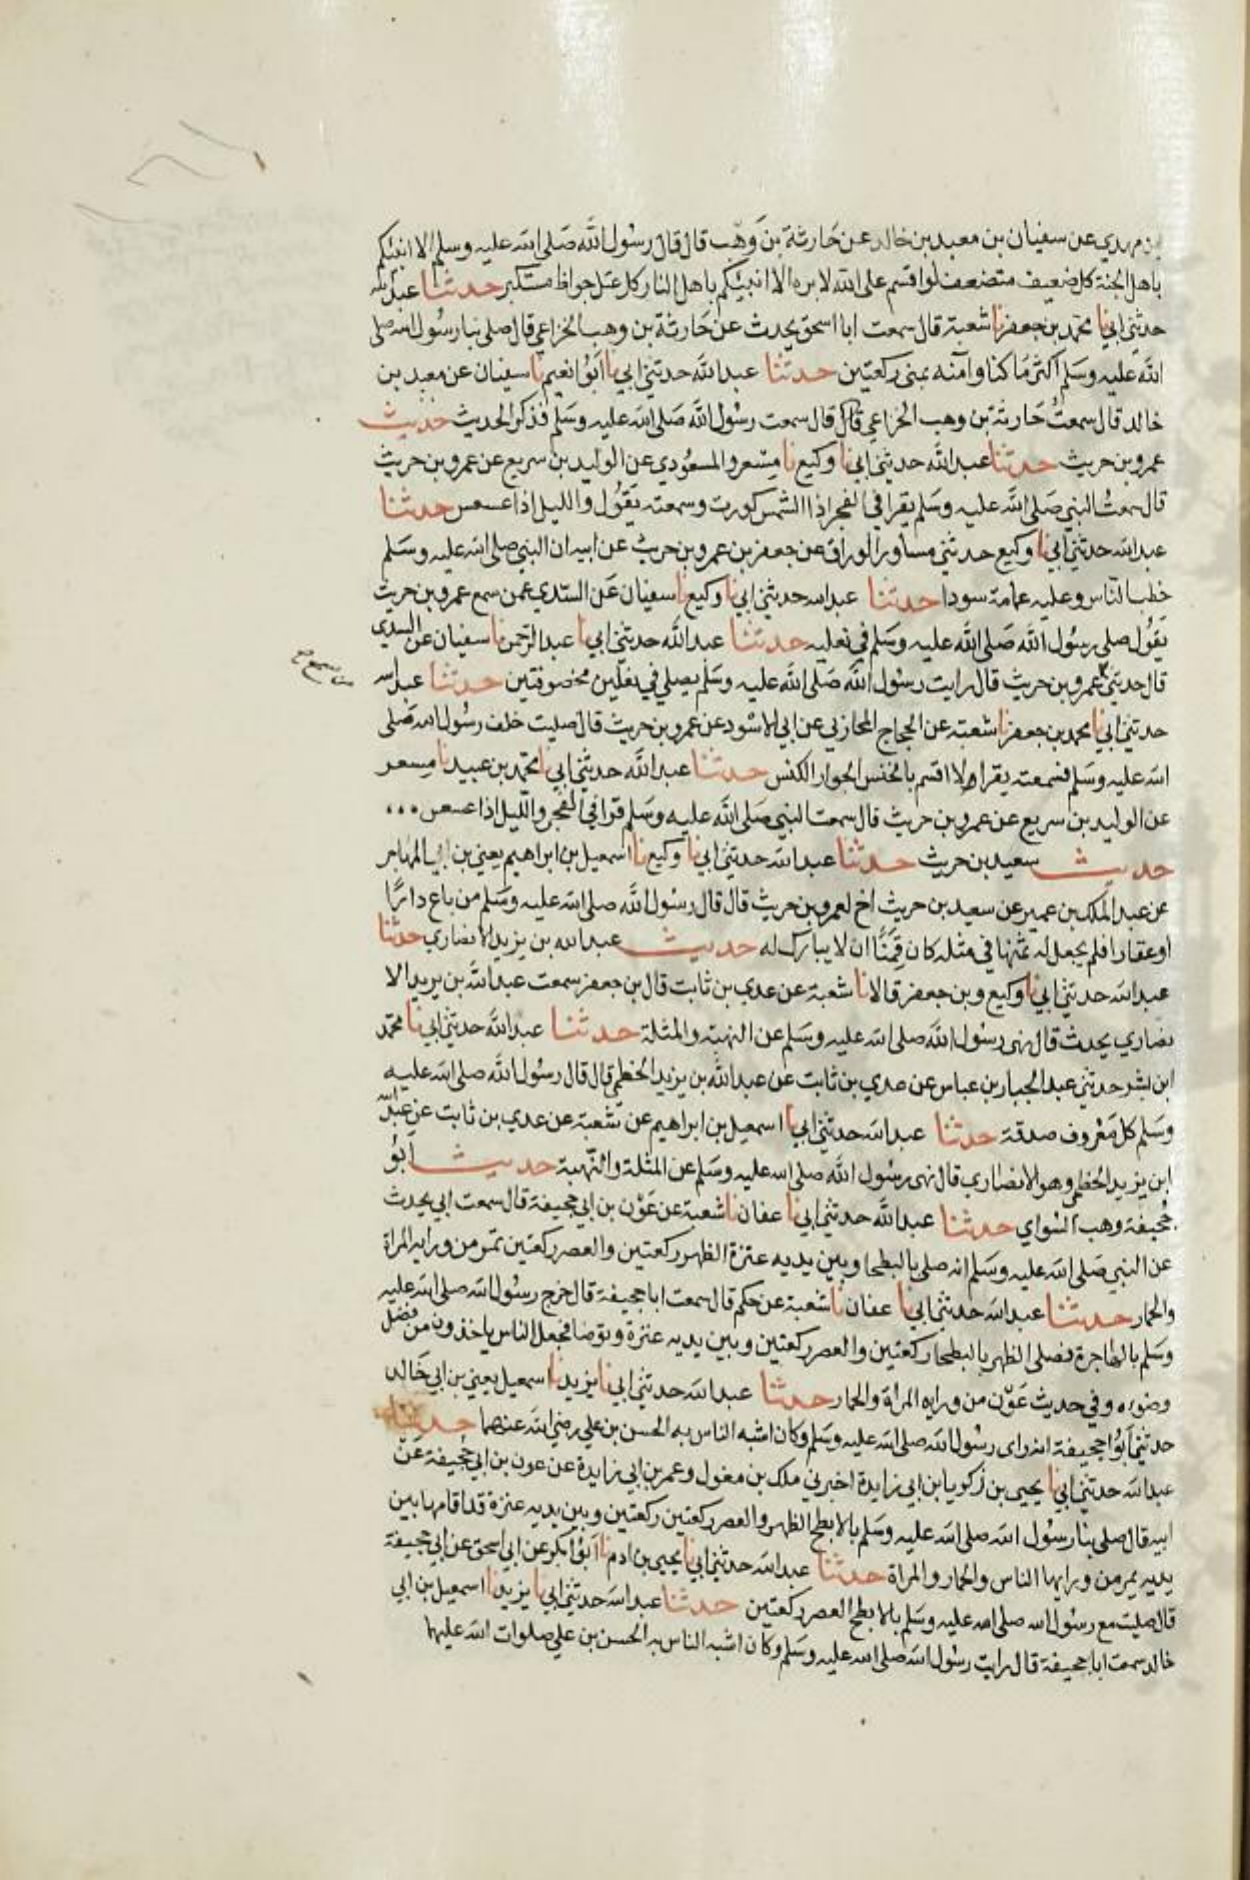 بن مهدي عن سفيان بن معبد بن خالد عن حارثة بن وهب قال قال رسول الله صلى الله عليه وسلم الا انبئكم
باهل الجنة كل ضعيف متضعف لو اقسم على الله لابره الا انبئكم باهل النار كل عتل جواظ مستكبر حدثنا عبد الله
حدثني ابي نا محمد بن جعفر نا شعبة قال سمعت ابا اسحق يحدث عن حارثة بن وهب الخزاعي قال صلى بنا رسول الله صلى
الله عليه وسلم اكثر ما كنا وامنه بمنى ركعتين حدثنا عبد الله حدثني ابي نا ابو نعيم نا سفيان عن معبد بن
خالد قال سمعت حارثة بن وهب الخزاعي قال قال سمعت رسول الله صلى الله عليه وسلم فذكر الحديث حديث
عمرو بن حريث حدثنا عبد الله حدثني ابي نا وكيع نا مسعر والمسعودي عن الوليد بن سريع عن عمرو بن حريث
قال سمعت النبي صلى الله عليه وسلم يقرا في الفجر اذا الشمس كورت وسمعته يقول والليل اذا عسعس حدثنا
عبد الله حدثني ابي نا وكيع حدثني مساور الوراق عن جعفر بن عمرو بن حريث عن ابيه ان النبي صلى الله عليه وسلم
خطب الناس وعليه عمامة سودا حدثنا عبد الله حدثني ابي نا وكيع نا سفيان عن السدي عمن سمع عمرو بن حريث
يقول صلى رسول الله صلى الله عليه وسلم في نعليه حدثنا عبد الله حدثني ابي نا عبد الرحمن نا سفيان عن السدي
قال حدثني عمرو بن حريث قال رايت رسول الله صلى الله عليه وسلم يصلي في نعلين مخصوفتين حدثنا عبد الله
حدثني ابي نا محمد بن جعفر نا شعبة عن الحجاج المحاربي عن ابي الاسود عن عمرو بن حريث قال صليت خلف رسول الله صلى
الله عليه وسلم فسمعته يقرا لا اقسم بالخنس الجوار الكنس حدثنا عبد الله حدثني ابي نا محمد بن عبيد نا مسعر
عن الوليد بن سريع عن عمرو بن حريث قال سمعت النبي صلى الله عليه وسلم قرا في الفجر والليل اذا عسعس ...
حديث سعيد بن حريث حدثنا عبد الله حدثني ابي نا وكيع نا اسمعيل بن ابراهيم يعني بن ابي المهاجر
عن عبد الملك بن عمير عن سعيد بن حريث اخ لعمرو بن حريث قال قال رسول الله صلى الله عليه وسلم من باع دارًا
او عقارا فلم يجعل ثمنها في مثله كان قمنًا ان لا يبارك له حديث عبد الله بن يزيد الانصاري حدثنا
عبد الله حدثني ابي نا وكيع وبن جعفر قالا نا شعبة عن عدي بن ثابت قال بن جعفر سمعت عبد الله بن يزيد الا
نصاري يحدث قال نهى رسول الله صلى الله عليه وسلم عن النهبة والمثلة حدثنا عبد الله حدثني ابي نا محمد
ابن بشر حدثني عبد الجبار بن عباس عن عدي بن ثابت عن عبد الله بن يزيد الخطمي قال قال رسول الله صلى الله عليه
وسلم كل معروف صدقة حدثنا عبد الله حدثني ابي نا اسمعيل بن ابراهيم عن شعبة عن عدي بن ثابت عن عبد الله
ابن يزيد الخطمي وهو الانصاري قال نهى رسول الله صلى الله عليه وسلم عن المثلة والنهبة حديث ابو
جحيفة وهب السواي حدثنا عبد الله حدثني ابي نا عفان نا شعبة عن عون بن ابي جحيفة قال سمعت ابي يحدث
عن النبي صلى الله عليه وسلم انه صلى بالبطحا وبين يديه عنزة الظهر ركعتين والعصر ركعتين تمر من ورايه المراة
والحمار حدثنا عبد الله حدثني ابي نا عفان نا شعبة عن حكم قال سمعت ابا جحيفة قال خرج رسول الله صلى الله عليه
وسلم بالهاجرة فصلى الظهر بالبطحا ركعتين والعصر ركعتين وبين يديه عنزة وتوضا فجعل الناس ياخذون من فضل
وضوءه وفي حديث عون من ورايه المراة والحمار حدثنا عبد الله حدثني ابي نا يزيد نا اسمعيل يعني بن ابي خالد
حدثني ابو جحيفة انه راى رسول الله صلى الله عليه وسلم وكان اشبه الناس به الحسن بن علي رضي الله عنهما حدثنا
عبد الله حدثني ابي نا يحيى بن زكريا بن ابي زايدة اخبرني ملك بن مغول وعمر بن ابي زايدة عن عون بن ابي جحيفة عن
ابيه قال صلى بنا رسول الله صلى الله عليه وسلم بالابطح الظهر والعصر ركعتين ركعتين وبين يديه عنزة قد اقامها بين
يديه يمر من ورايها الناس والحمار والمراة حدثنا عبد الله حدثني ابي نا يحيى بن ادم نا ابو بكر عن ابي اسحق عن ابي جحيفة
قال صليت مع رسول الله صلى الله عليه وسلم بالابطح العصر ركعتين حدثنا عبد الله حدثني ابي نا يزيد نا اسمعيل بن ابي
خالد سمعت ابا جحيفة قال رايت رسول الله صلى الله عليه وسلم وكان اشبه الناس به الحسن بن علي صلوات الله عليهما